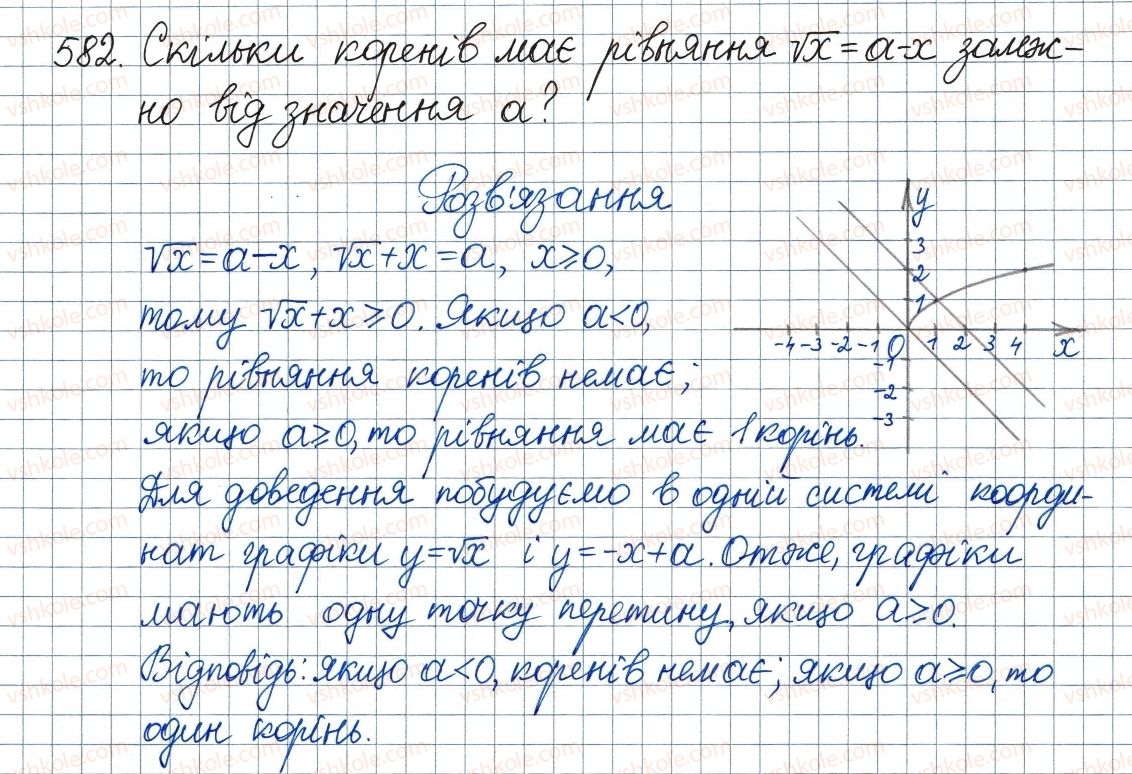 582. Скільки коренів має рівняння √x = a-x залеж-
но від значення a?
Розв'язання
√x = a-x, √x+x = a, x⩾0,
тому √x+x ⩾ 0. Якщо a<0,
то рівняння коренів немає;
якщо a⩾0, то рівняння має 1 корінь.
Для доведення побудуємо в одній системі коорди-
нат графіки y=√x і y=-x+a. Отже, графіки
мають одну точку перетину, якщо a⩾0.
Відповідь: якщо a<0, коренів немає; якщо a⩾0, то
один корінь.
y
3
2
1
-4 -3 -2 -1 0 1 2 3 4 x
-1
-2
-3